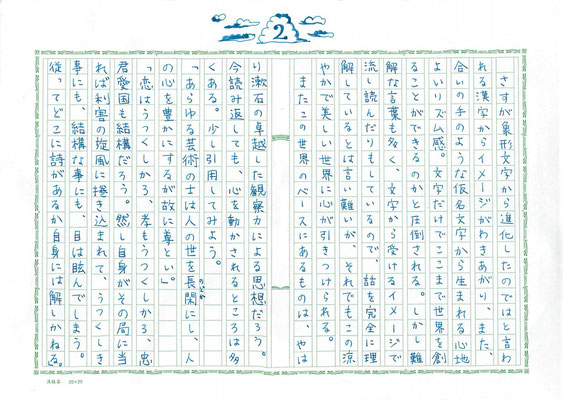 2
さすが象形文字から進化したのではと言わ
れる漢字からイメージがわきあがり、また、
合いの手のような仮名文字から生まれる心地
よいリズム感。文字だけでここまで世界を創
ることができるのかと圧倒される。しかし難
解な言葉も多く、文字から受けるイメージで
流し読んだりもしているので、話を完全に理
解しているとは言い難いが、それでもこの涼
やかで美しい世界に心が引きつけられる。
またこの世界のベースにあるものは、やは
り漱石の卓越した観察力による思想だろう。
今読み返しても、心を動かされるところは多
くある。少し引用してみよう。
「あらゆる芸術の士は人の世を長閑にし、人
のどか
の心を豊かにするが故に尊とい。」
「恋はうつくしかろ、孝もうつくしかろ、忠
君愛国も結構だろう。然し自身がその局に当
れば利害の旋風に捲き込まれて、うつくしき
事にも、結構な事にも、目は眩んでしまう。
従ってどこに詩があるか自身には解しかねる。
20×20